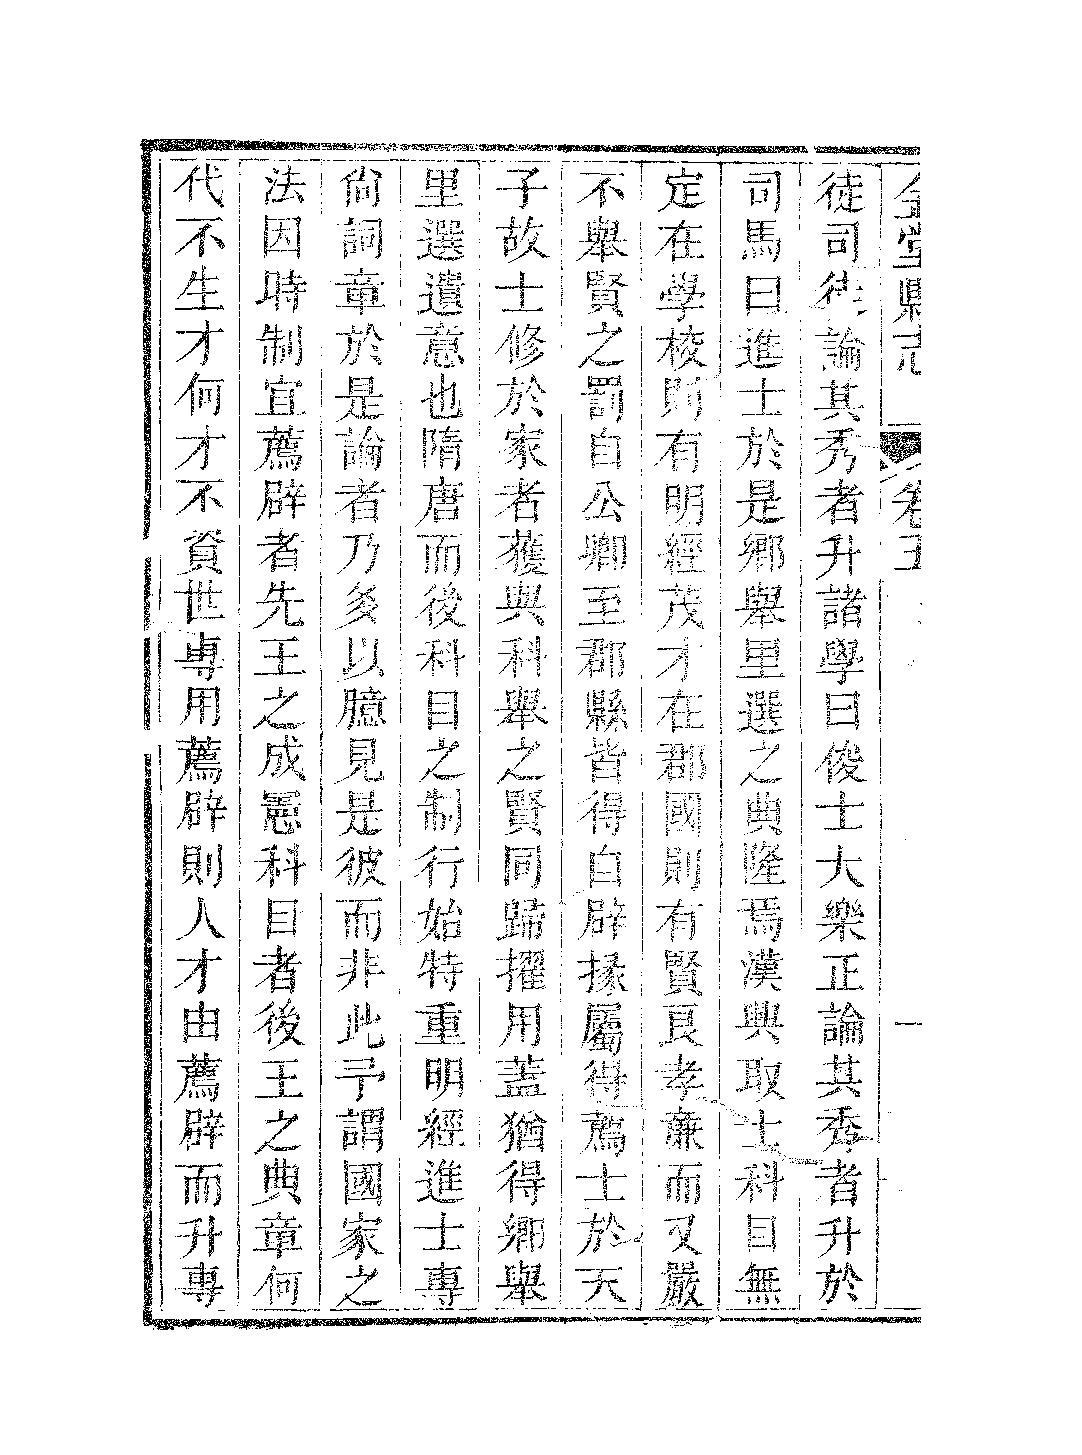 金堂縣志 卷五 一
徒司徒論其秀者升諸學曰俊士大樂正論其秀者升於
司馬曰進士於是鄉舉里選之典隆焉漢興取士科目無
定在學校則有明經茂才在郡國則有賢良孝廉而又嚴
不舉賢之罰自公卿至郡縣皆得自辟掾屬得薦士於天
子故士修於家者獲與科舉之賢同歸擢用蓋猶得鄉舉
里選遺意也隋唐而後科目之制行始特重明經進士專
尙詞章於是論者乃多以臆見是彼而非此予謂國家之
法因時制宜薦辟者先王之成憲科目者後王之典章何
代不生才何才不資世專用薦辟則人才由薦辟而升專